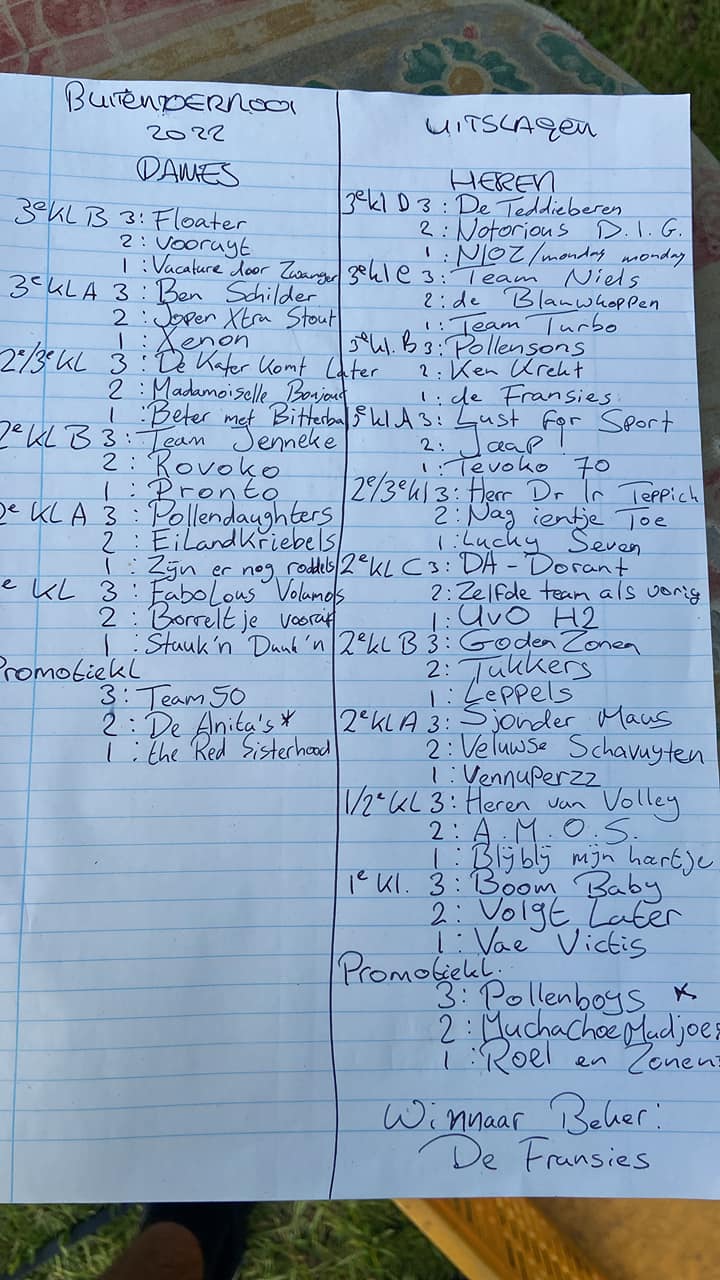 BUITENTOERNOOI
2022
DAMES
3e KL B 3: Floater
2: Vooruyt
1: Vacature door Zwanger
3e KL A 3: Ben Schilder
2: Jopen Xtra Stout
1: Xenon
2e/3e KL 3: De Kater Komt Later
2: Madamoiselle Bonjour
1: Beter met Bitterbal
2e KL B 3: Team Jenneke
2: Rovoko
1: Pronto
2e KL A 3: Pollendaughters
2: EiLandKriebels
1: Zijn er nog roddels
e KL 3: Fabolous Volamos
2: Borreltje vooraf
1: Stauk'n Dauk'n
Promotiekl
3: Team 50
2: De Anita's*
1: the Red Sisterhood
UITSLAGEN
HEREN
3e kl D 3: De Teddieberen
2: Notorious D.I.G.
1: NIOZ/monday monday
3e kl C 3: Team Niels
2: de Blauwkoppen
1: Team Turbo
3e kl. B 3: Pollensons
2: Ken Krekt
1: de Fransies
3e kl A 3: Lust for Sport
2: Jaap!
1: Tevoko 70
2e/3e kl 3: Herr Dr Ir Teppich
2: Nag ientje Toe
1: Lucky Seven
2e KL C 3: DA-Dorant
2: Zelfde team als vorig
1: UVO H2
2e KL B 3: GodenZonen
2: Tukkers
1: Leppels
2e KL A 3: Sjonder Maus
2: Veluwse Schavuyten
1: Vennuperzz
1/2e KL 3: Heren van Volley
2: A.M.O.S.
1: Blijblij mijn hartje
1e Kl. 3: Boom Baby
2: Volgt Later
1: Vae Victis
Promotiekl.
3: Pollenboys *
2: MuchachoeMadjoes
1: Roel en Zonen
Winnaar Beker:
De Fransies